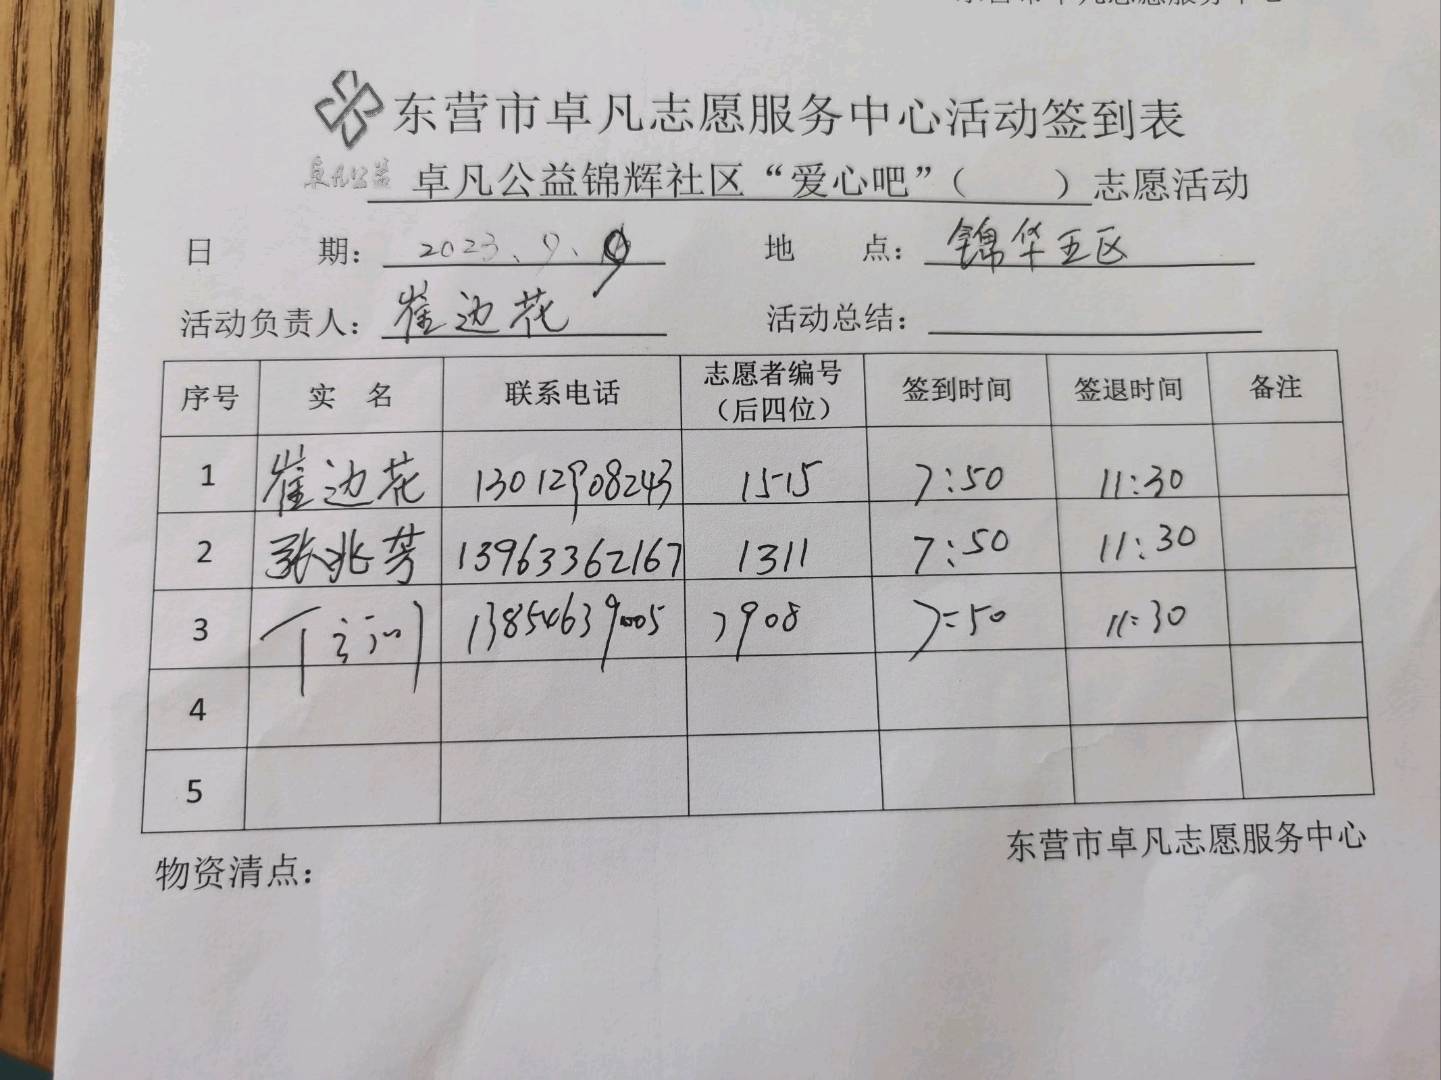 东营市卓凡志愿服务中心
东营市卓凡志愿服务中心活动签到表
卓凡公益
卓凡公益锦辉社区“爱心吧”（ ）志愿活动
日 期： 2023、9、 地 点： 锦华五区
活动负责人： 崔边花 活动总结：
序号 实 名 联系电话 志愿者编号（后四位） 签到时间 签退时间 备注
1 崔边花 13012908243 1515 7:50 11:30
2 张兆芳 13963362167 1311 7:50 11:30
3 13854639005 7908 7:50 11:30
4
5
东营市卓凡志愿服务中心
物资清点：